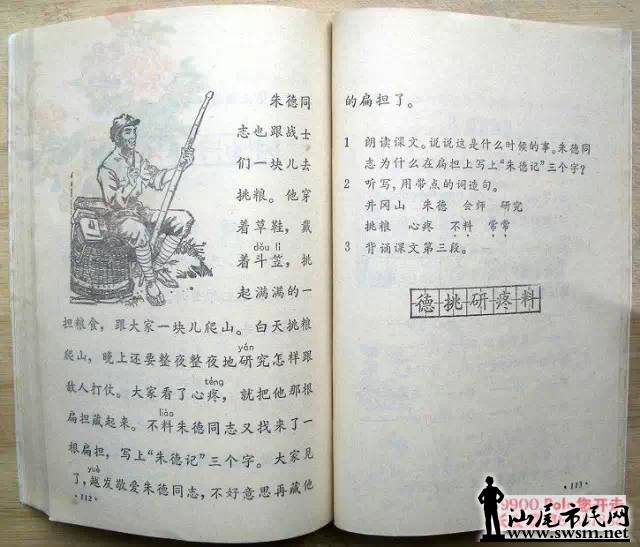 朱德同
志也跟战士
们一块儿去
挑粮。他穿
着草鞋,戴
dǒu lì
着斗笠,挑
起满满的一
担粮食,跟大家一块儿爬山。白天挑粮
yán
爬山,晚上还要整夜整夜地研究怎样跟
téng
敌人打仗。大家看了心疼,就把他那根
liào
扁担藏起来。不料朱德同志又找来了一
根扁担,写上“朱德记”三个字。大家见
yuè
了,越发敬爱朱德同志,不好意思再藏他
·112·
的扁担了。
1 朗读课文。说说这是什么时候的事。朱德同
志为什么在扁担上写上“朱德记”三个字?
2 听写,用带点的词造句。
井冈山 朱德 会师 研究
挑粮 心疼 不料 常常
3 背诵课文第三段。
德挑研疼料
·113·
汕尾市民网
www.swsm.net